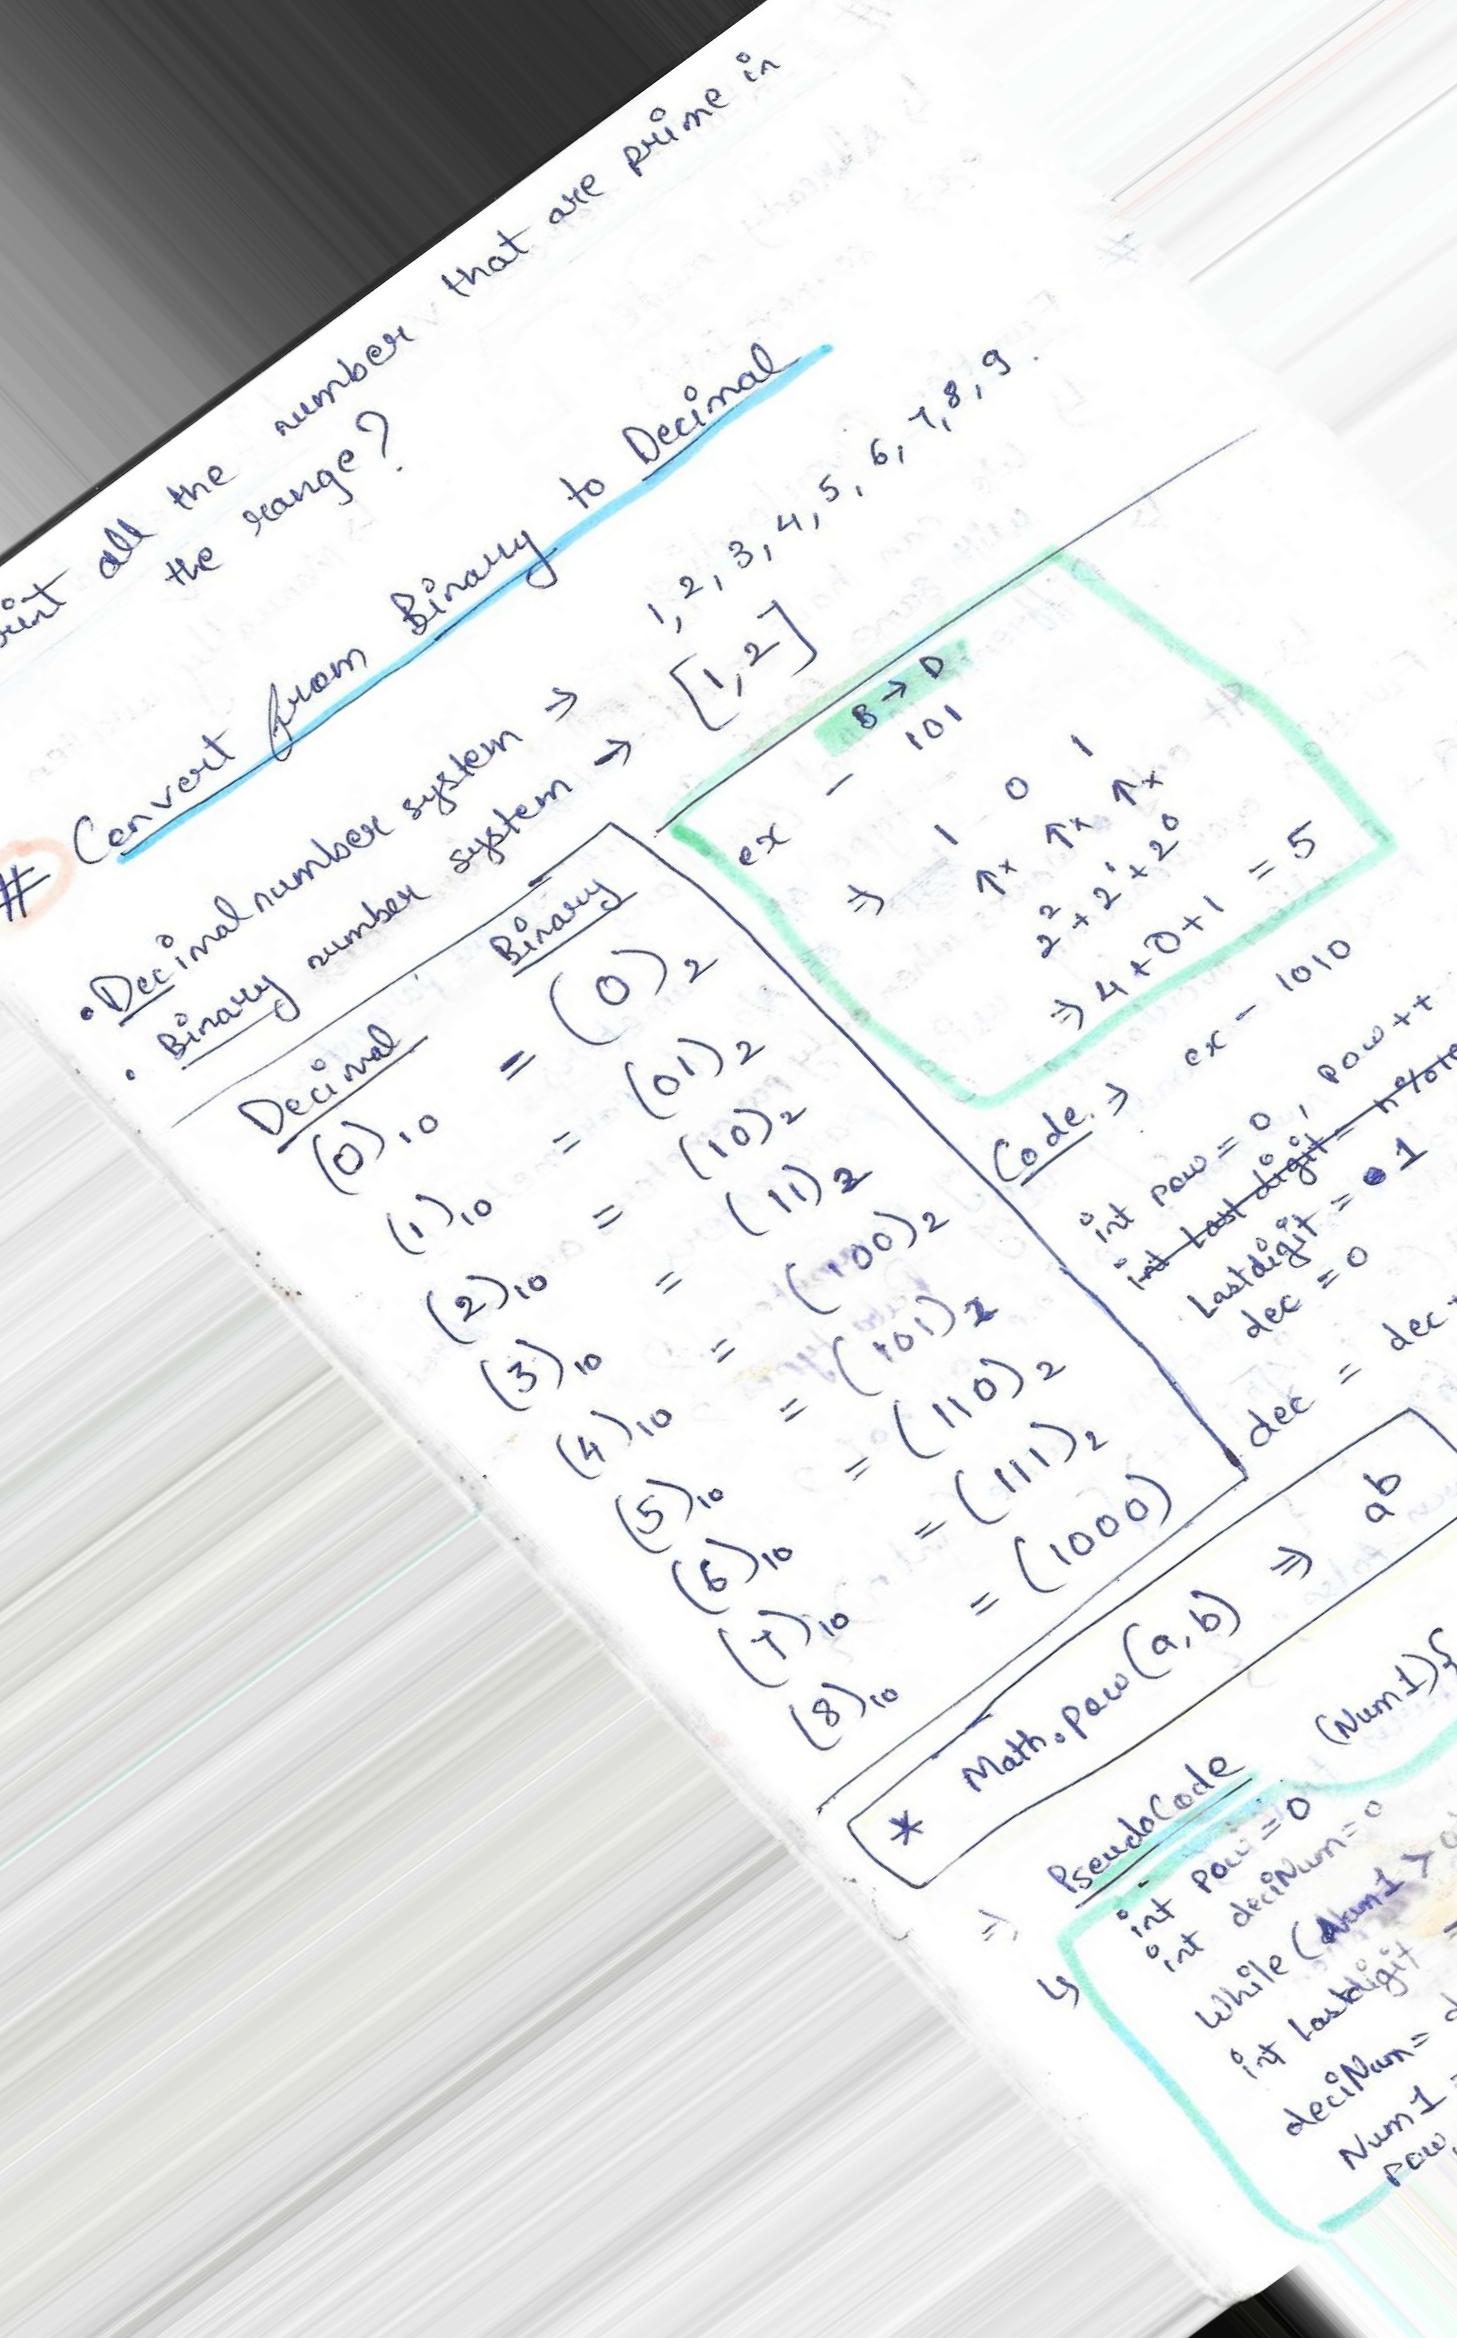 all the number that are prime in
the range?
# Convert from Binary to Decimal
• Decimal number system → 1, 2, 3, 4, 5, 6, 7, 8, 9.
• Binary number system → [1, 2]
Decimal Binary
(0)10 = (0)2
(1)10 = (01)2
(2)10 = (10)2
(3)10 = (11)2
(4)10 = (100)2
(5)10 = (101)2
(6)10 = (110)2
(7)10 = (111)2
(8)10 = (1000)
B → D
ex - 101
⇒ 1 0 1
↑x ↑x ↑x
2² + 2¹ + 2⁰
⇒ 4 + 0 + 1 = 5
Code ⇒ ex - 1010
int pow = 0, pow++
int last digit =
Lastdigit = 1
dec = 0
dec = dec
* Math.pow(a,b) ⇒ a^b
⇒ PseudoCode (Num1){
↳ int pow = 0
int deciNum = 0
While (Num1 >
int Lastdigit =
deciNum =
Num1 =
pow